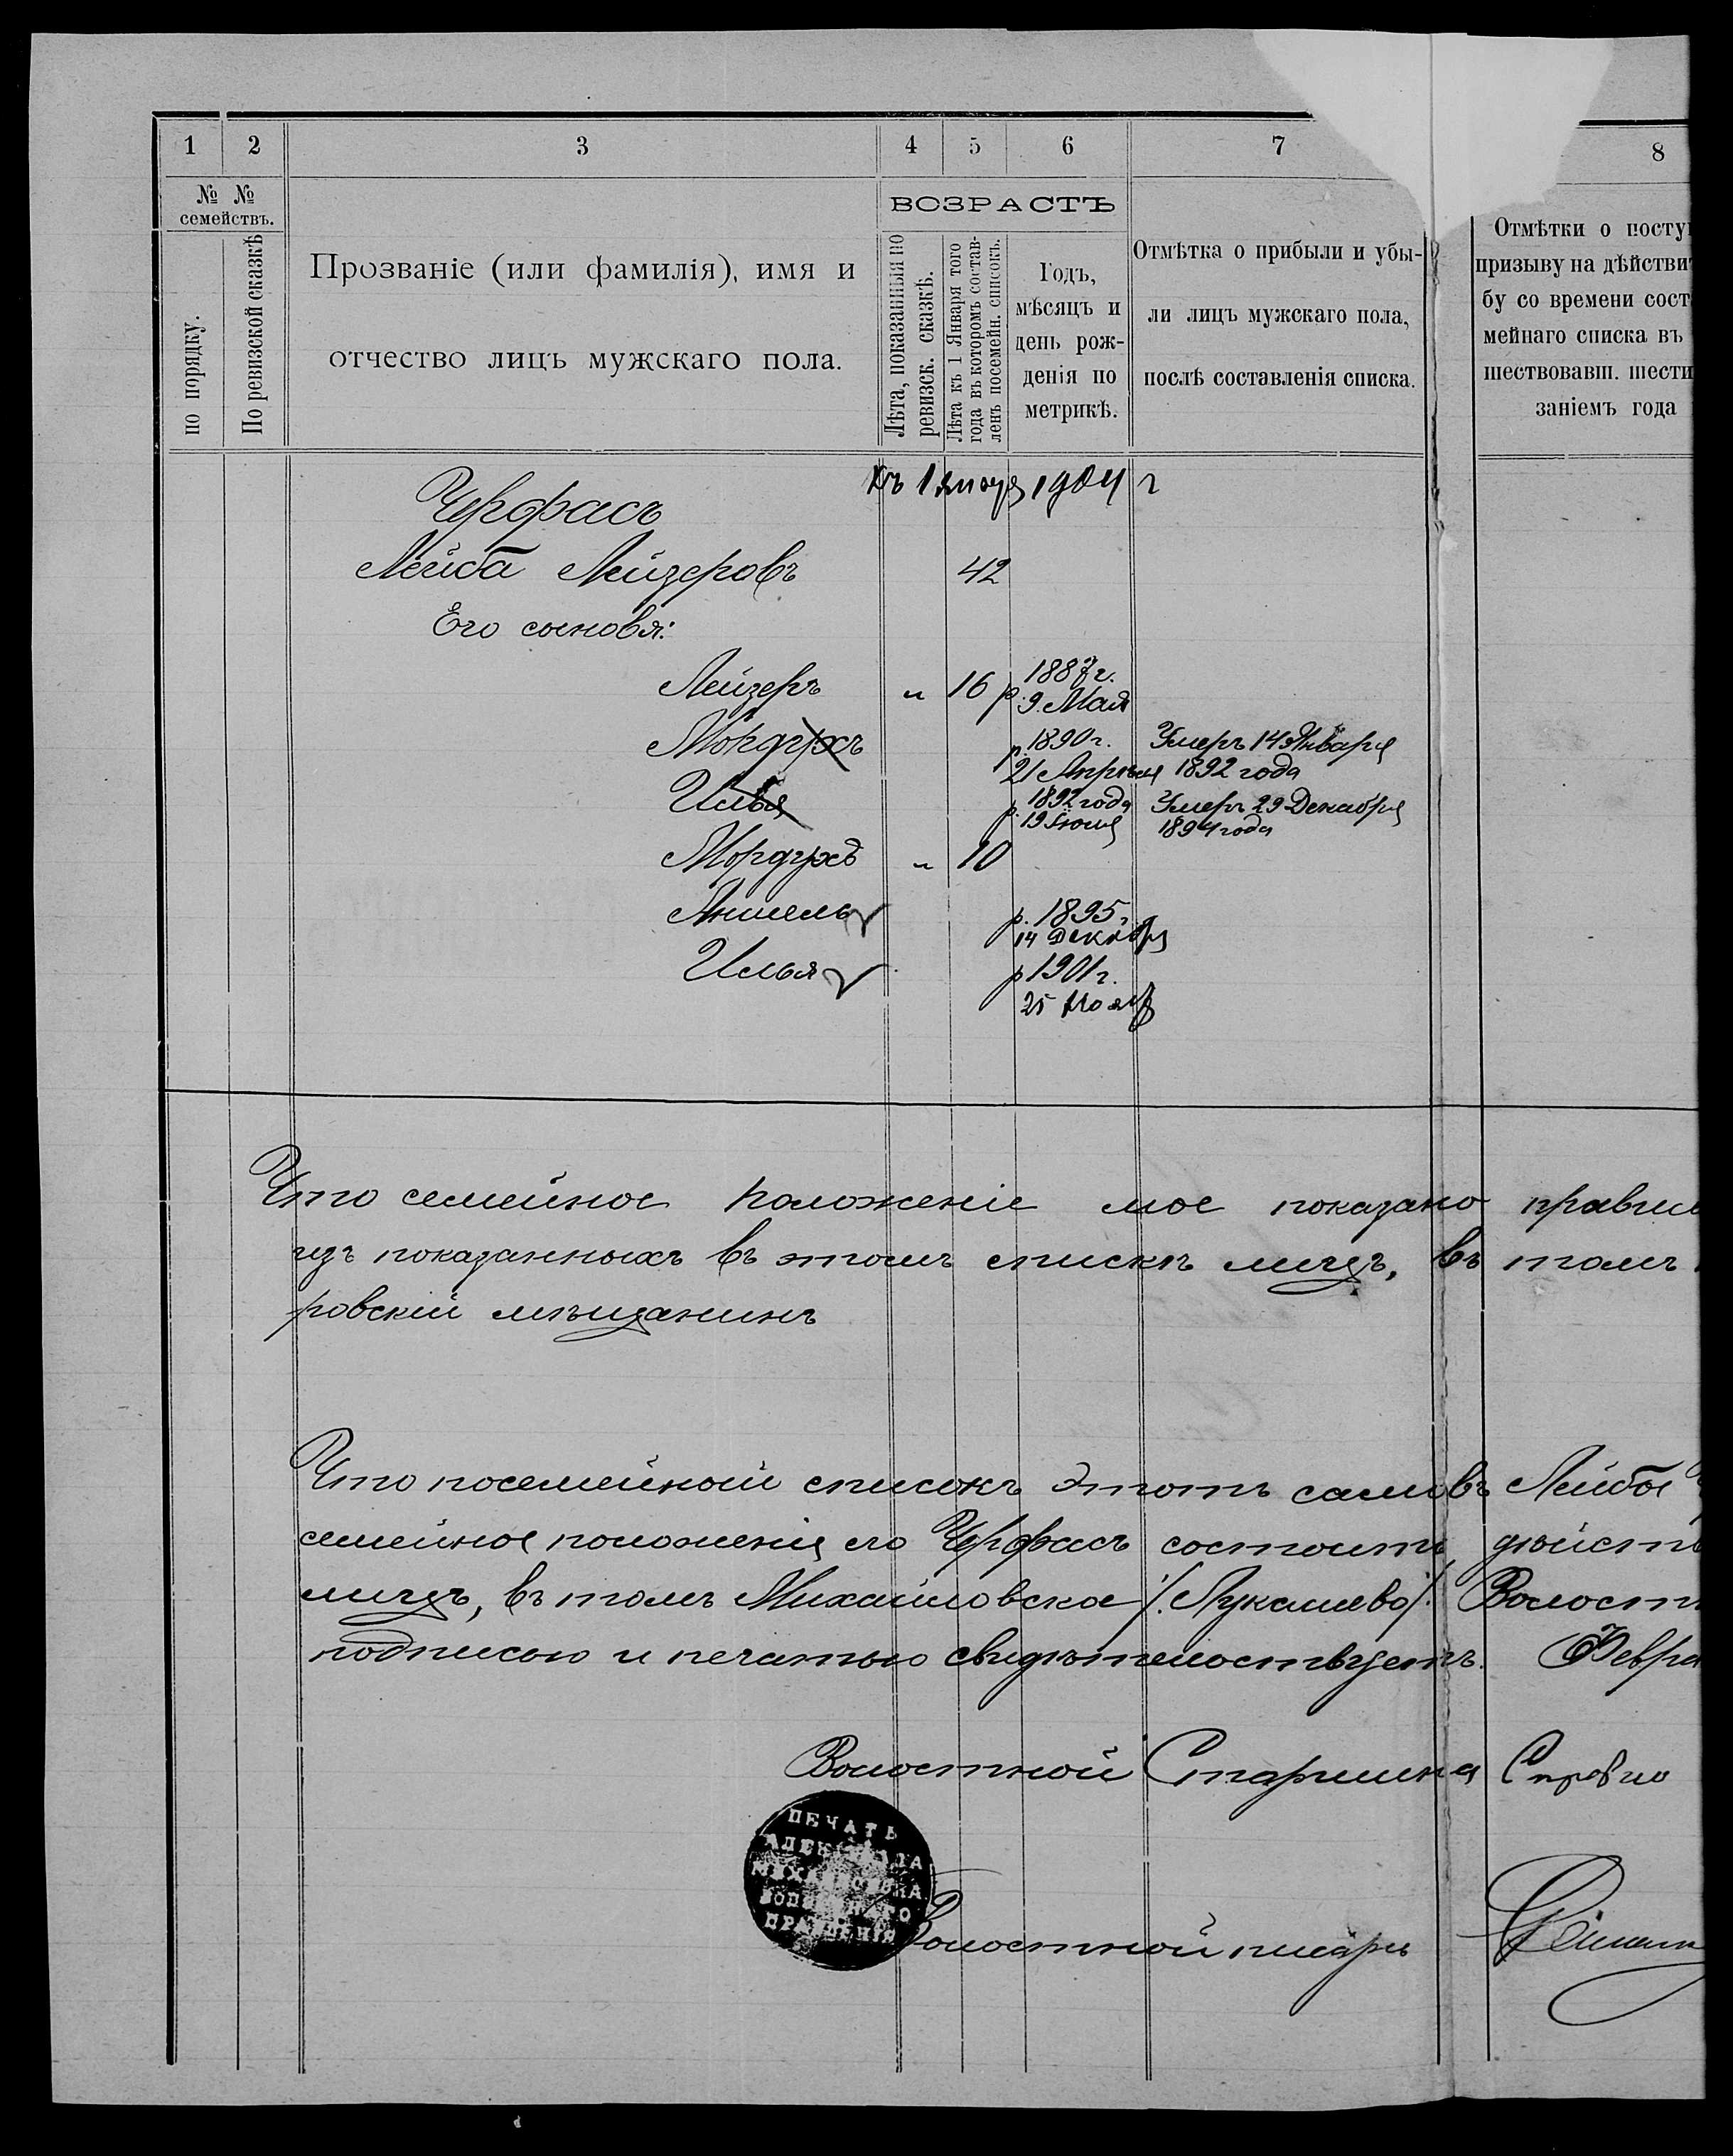 1 2 3 4 5 6 7 8
№ № семействъ.
по порядку.
По ревизской сказкѣ
Прозваніе (или фамилія), имя и
отчество лицъ мужскаго пола.
ВОЗРАСТЪ
Лѣта, показанныя по
ревизск. сказкѣ.
Лѣта къ 1 Января того
года въ которомъ состав-
ленъ посемейн. списокъ.
Годъ,
мѣсяцъ и
день рож-
денія по
метрикѣ.
Отмѣтка о прибыли и убы-
ли лицъ мужскаго пола,
послѣ составленія списка.
Отмѣтки о посту
призыву на дѣйстви
бу со времени сост
мейнаго списка въ
шествовавш. шести
заніемъ года
Къ 1 января 1904 г
Черфасъ
Лейба Лейзеровъ 42
Его сыновья:
Лейзеръ " 16 р. 1887 г.
9. Мая
Мордухъ р. 1890 г. Умеръ 14 Января
21 Апрѣля 1892 года
Илья р. 1892 года Умеръ 29 Декабря
19 Іюля 1894 года
Мордухъ " 10
Аншель р. 1895 г.
14 Декабря
Илья р 1901 г.
25 Нояб
Что семейное положеніе мое показано правил
изъ показанныхъ въ этомъ спискѣ лицъ, въ томъ
ровскій мѣщанинъ
Что посемейный списокъ этотъ самъ Лейбы
семейное положенія его Черфасъ состоитъ дѣйств
лицъ, въ томъ Михайловское /. Лукашево /. Волостн
подписью и печатью свидѣтельствуетъ. Февра
Волостной Старшина
ПЕЧАТЬ
ПРАВЛЕНІЯ
Волостной писарь